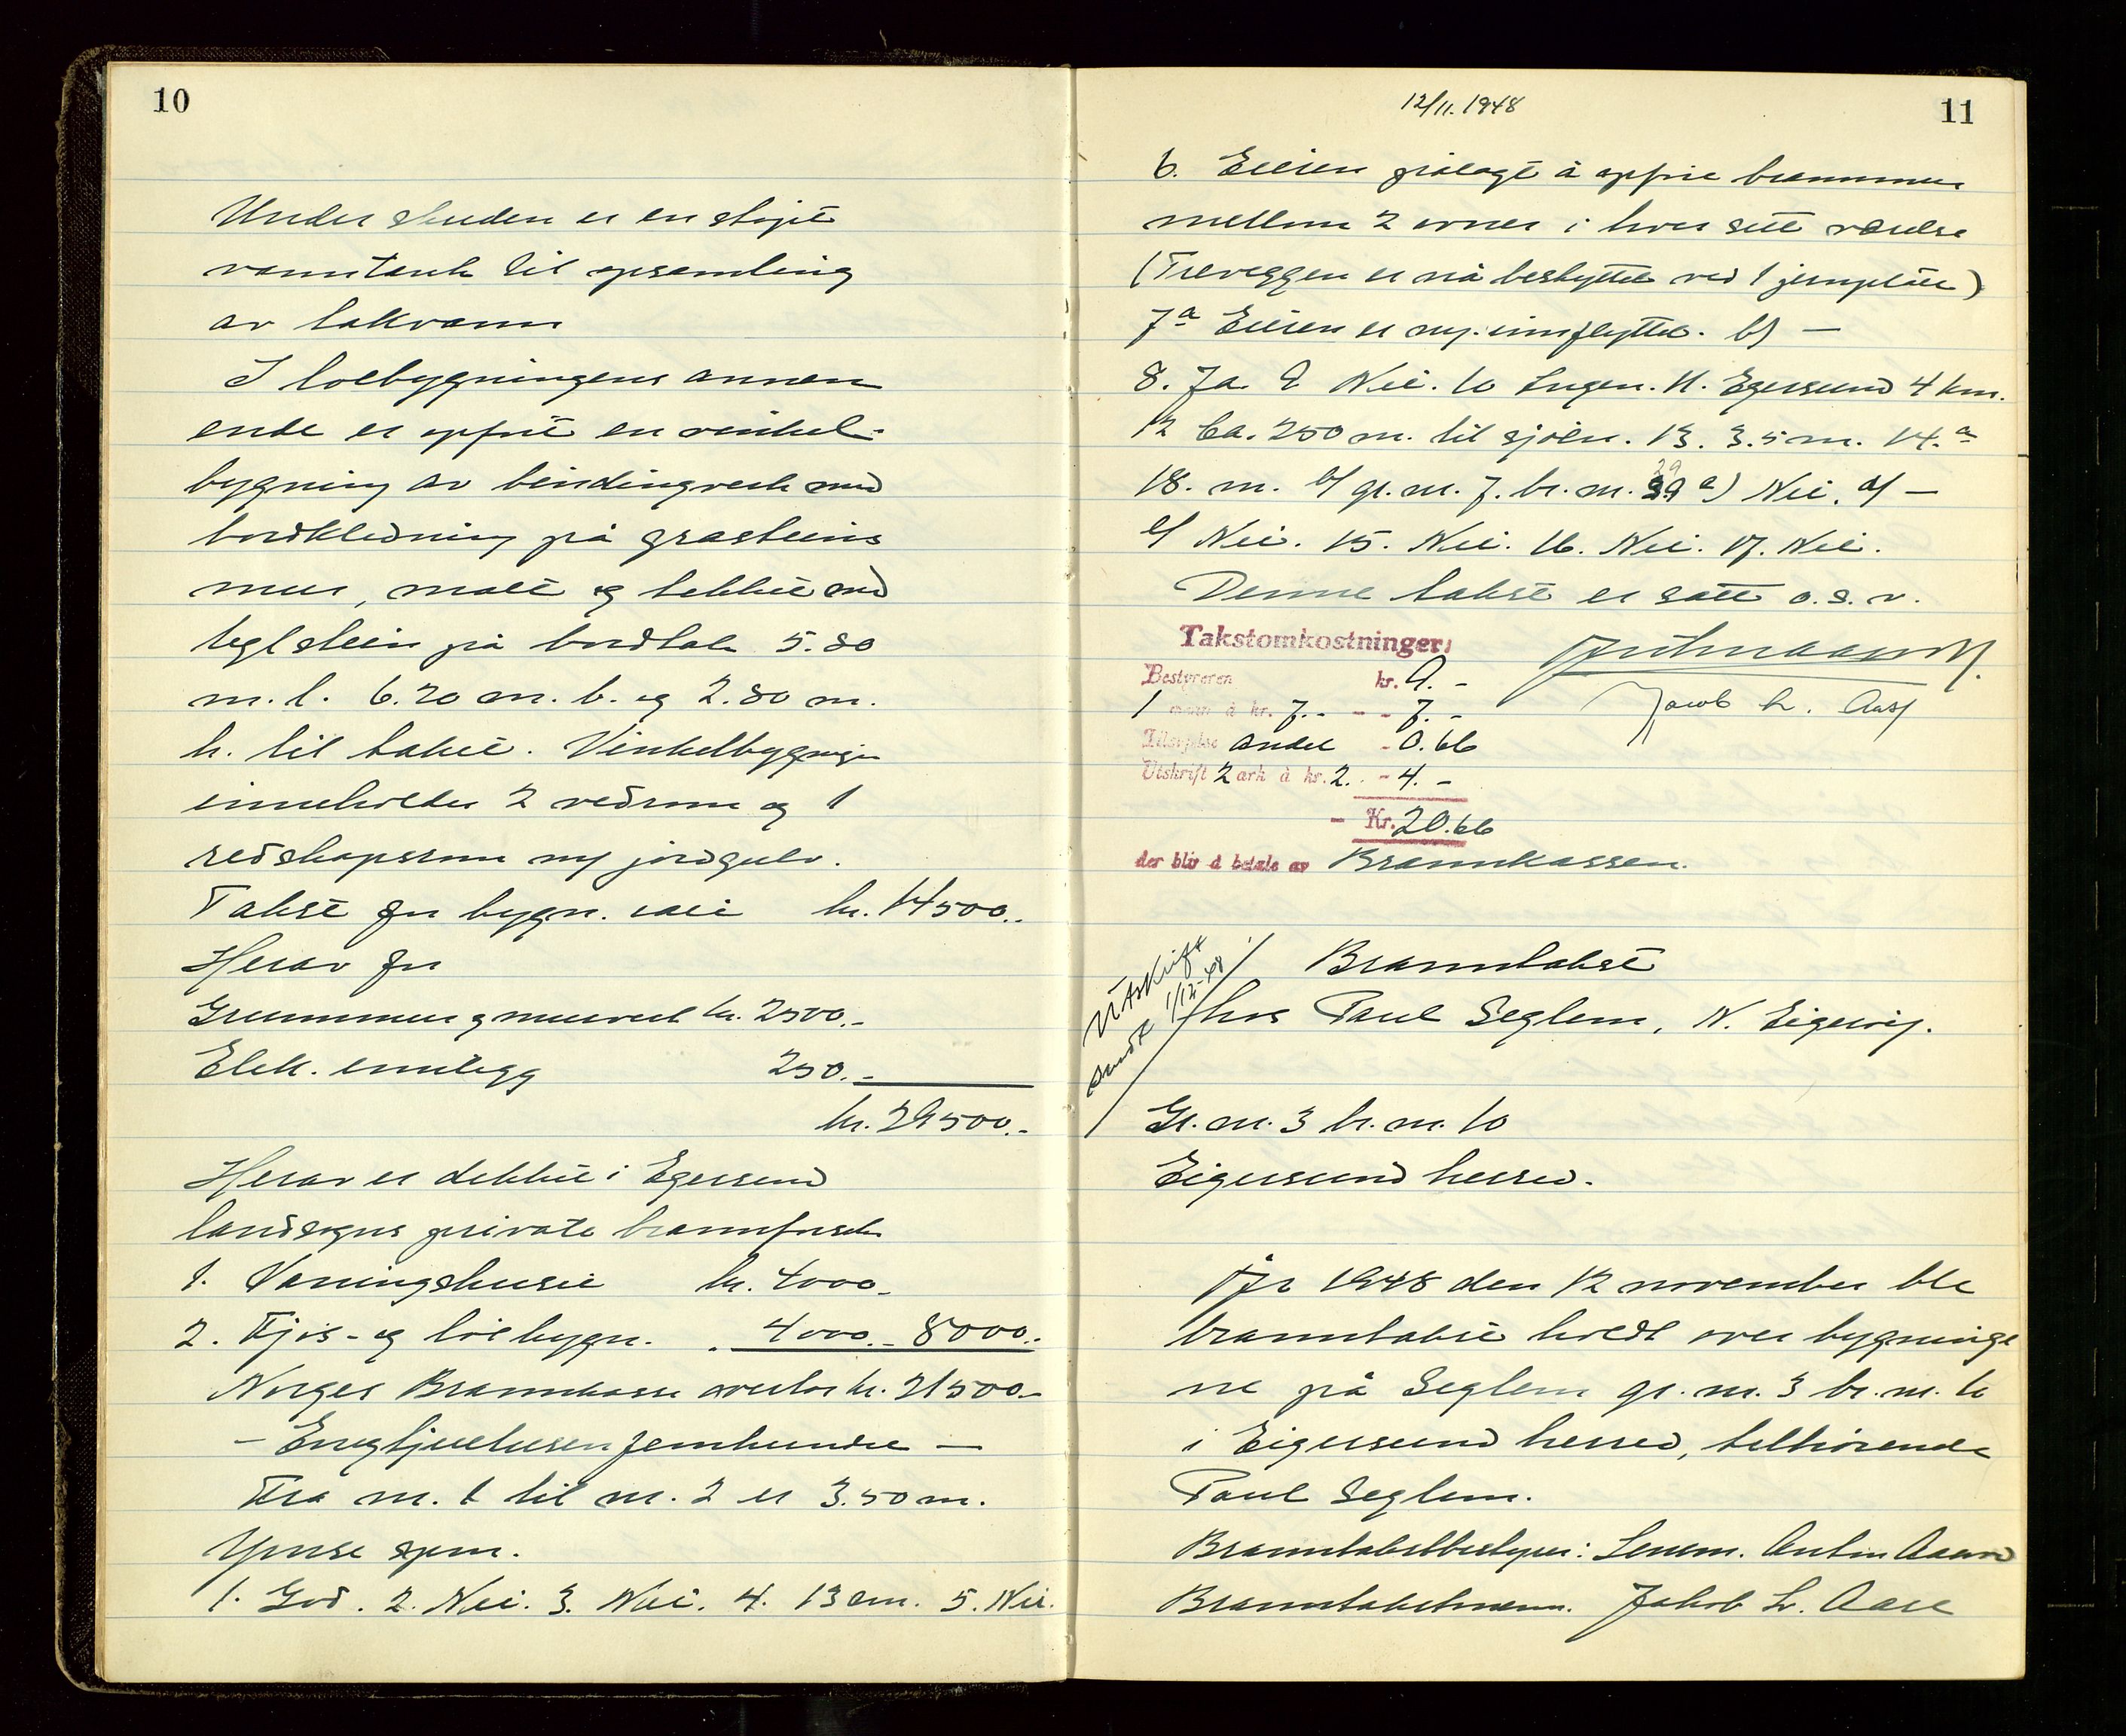 10
Under enden er en støpt
vanntank til opsamling
av takvann
I løebygningens annen
ende er opført en vinkel-
bygning av bindingverk med
bordkledning på grasteins
mur, malt og tekket med
teglstein på bordtak 5.80
m. l. 6.20 m. b. og 2.80 m.
h. til taket. Vinkelbygningen
inneholder 2 vedrom og 1
redskapsrom m/ jordgulv.
Takst for bygn. kr. 14500.-
Herav for
Grunnmur og murverk kr. 2500.-
Elek. innlegg 250.-
kr. 29500.-
Herav er dekket i Egersund
landsogns private brannforsik
1. Vaningshuset kr. 4000.-
2. Fjøs- og løebygn. 4000.- 8000.-
Norges Brannkasse overlot kr. 21500.-
- Enogtjuetusenfemhundre -
Fra nr. 1 til nr. 2 er 3.50 m.
Ymse spm.
1. God. 2. Nei. 3. Nei. 4. 13 cm. 5. Nei.
12/11. 1948
11
6. Eieren pålagt å oppføre brannmur
mellom 2 ovner i hver sitt værelse
(Treveggen er nå beskyttet ved 1 jernplate)
7 a Eieren er ny. innflyttet. b) -
8. Ja 9 Nei. 10 Ingen. 11. Egersund 4 km.
12 Ca. 250 m. til sjøen. 13. 3.5 m. 14. a
18. m. b/ gr. nr. 7. br. nr. 29 c) Nei. d/ -
e/ Nei. 15. Nei. 16. Nei. 17. Nei.
Denne takst er satt o. s. v.
Takstomkostninger:
Bestyreren kr. 9. -
1 mann à kr. 7.- - - 7. -
Tilsigelse andel - 0.66
Utskrift 2 ark à kr. 2. - 4. -
- Kr. 20.66
der blir å betale av Brannkassen.
Jacob L. Aase
Utskrift
sendt 1/12-48
Branntakst
hos Paul Seglem, N. Eigerøy.
Gr. nr. 3 br. nr. 10
Eigersund herred.
År 1948 den 12 november ble
branntakst holdt over bygninge
ne på Seglem gr. nr. 3 br. nr. 10
i Eigersund herred, tilhørende
Paul Seglem.
Branntakstbestyrer: Lensm. Anton Aaand
Branntakstmann. Jakob L. Aase